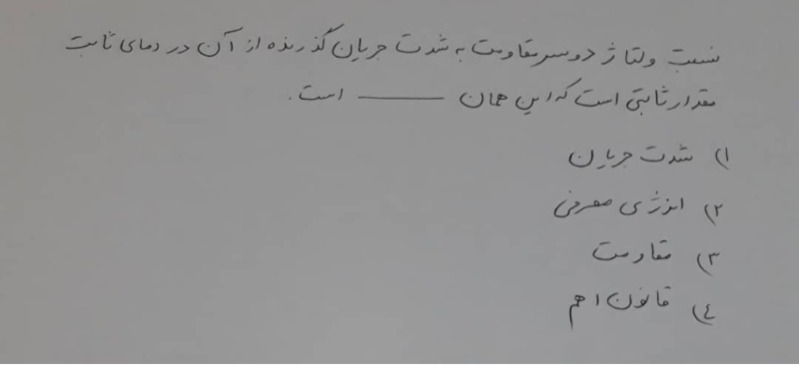 نسبت ولتاژ دو سر مقاومت به شدت جریان گذرنده از آن در دمای ثابت
مقدار ثابتی است که این همان ـــــــ است.
۱) شدت جریان
۲) انرژی مصرفی
۳) مقاومت
٤) قانون اهم